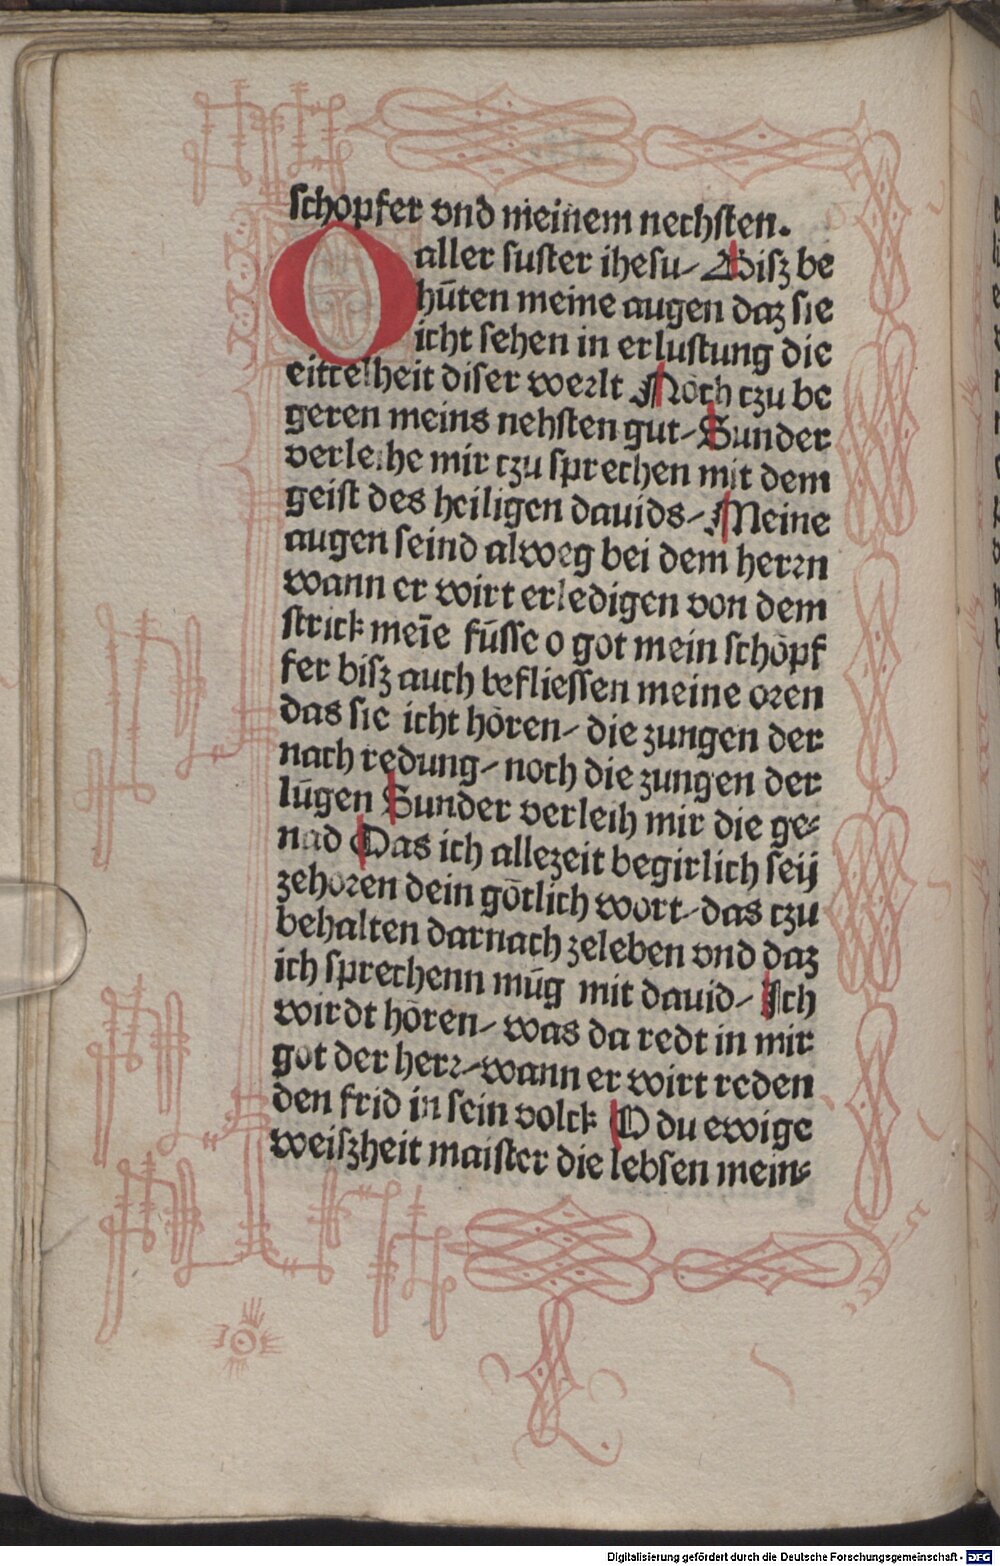 schopfer vnd meinem nechsten.
O aller suster ihesu⸗ Bisz be
hűten meine augen daz sie
icht sehen in erlustung die
eittelheit diser werlt Noch tzu be
geren meins nehsten gut⸗ Sunder
verleihe mir tzu sprechen mit dem
geist des heiligen dauids⸗ Meine
augen seind alweg bei dem herrn
wann er wirt erledigen von dem
strick meīe fűsse o got mein schőpf
fer bisz auch befliessen meine oren
das sie icht hőren⸗ die zungen der
nach redung⸗ noch die zungen der
lűgen Sunder verleih mir die ge⸗
nad Das ich allezeit begirlich seij
zehoren dein gőtlich wort⸗ das tzu
behalten darnach zeleben vnd daz
ich sprechenn műg mit dauid⸗ Ich
wirdt hőren⸗ was da redt in mir
got der herr⸗ wann er wirt reden
den frid in sein volck O du ewige
weiszheit maister die lebsen mein⸗
Digitalisierung gefördert durch die Deutsche Forschungsgemeinschaft - DFG